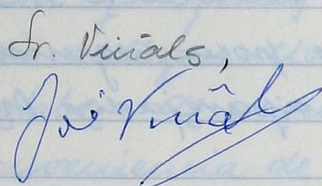 Sr. Viñals,
José Viñals